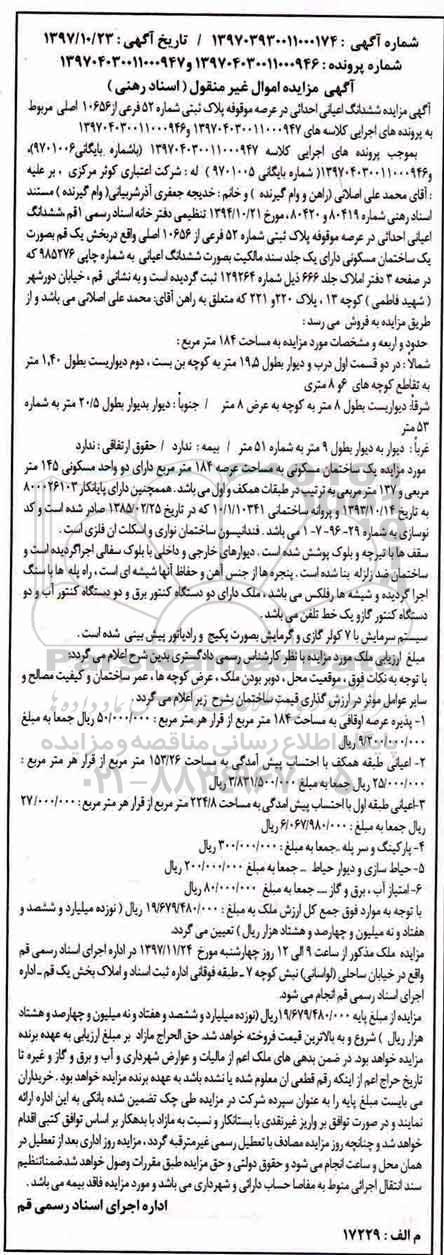 شماره آگهی : ۱۳۹۷۰۳۹۳۰۰۱۱۰۰۰۱۷۴ / تاریخ آگهی : ۱۳۹۷/۱۰/۲۳
شماره پرونده : ۱۳۹۷۰۴۰۳۰۰۱۱۰۰۰۹۴۶ و ۱۳۹۷۰۴۰۳۰۰۱۱۰۰۰۹۴۷
آگهی مزایده اموال غیر منقول ( اسناد رهنی )
آگهی مزایده ششدانگ اعیانی احداثی در عرصه موقوفه پلاک ثبتی شماره ۵۲ فرعی از ۱۰۶۵۶ اصلی مربوط
به پرونده های اجرایی کلاسه های ۱۳۹۷۰۴۰۳۰۰۱۱۰۰۰۹۴۷ و ۱۳۹۷۰۴۰۳۰۰۱۱۰۰۰۹۴۶
بموجب پرونده های اجرایی کلاسه ۱۳۹۷۰۴۰۳۰۰۱۱۰۰۰۹۴۷ (باشماره بایگانی۹۷۰۱۰۰۶)،
و۱۳۹۷۰۴۰۳۰۰۱۱۰۰۰۹۴۶( شماره بایگانی ۹۷۰۱۰۰۵ ) له : شرکت اعتباری کوثر مرکزی ، بر علیه
: آقای محمد علی اصلانی (راهن و وام گیرنده ) و خانم : خدیجه جعفری آذرشربیانی( وام گیرنده ) مستند
اسناد رهنی شماره ۸۰۴۱۹ و ۸۰۴۲۰ ، مورخ ۱۳۹۴/۱۰/۲۱ تنظیمی دفتر خانه اسناد رسمی ۱قم ،ششدانگ
اعیانی احداثی در عرصه موقوفه پلاک ثبتی شماره ۵۲ فرعی از ۱۰۶۵۶ اصلی واقع دربخش یک قم بصورت
یک ساختمان مسکونی دارای یک جلد سند مالکیت بصورت ششدانگ اعیانی به شماره چاپی ۹۸۵۲۷۶ که
در صفحه ۳ دفتر املاک جلد ۶۶۶ ذیل شماره ۱۲۹۲۶۴ ثبت گردیده است و به نشانی قم ، خیابان دورشهر
( شهید فاطمی ) کوچه ۱۳ ، پلاک ۲۲۰و ۲۲۱ که متعلق به راهن آقای: محمد علی اصلانی می باشد و از
طریق مزایده به فروش می رسد :
حدود و اربعه و مشخصات مورد مزایده به مساحت ۱۸۴ متر مربع :
شمالا : در دو قسمت اول درب و دیوار بطول ۱۹,۵ متر به کوچه بن بست ، دوم دیواریست بطول ۱,۴۰ متر
به تقاطع کوچه های ۶و ۸ متری
شرقاً: دیواریست بطول ۸ متر به کوچه به عرض ۸ متر / جنوباً : دیوار بدیوار بطول ۲۰/۵ متر به شماره
۵۳ متر
غرباً : دیوار به دیوار بطول ۹ متر به شماره ۵۱ متر / بیمه : ندارد / حقوق ارتفاقی : ندارد
مورد مزایده یک ساختمان مسکونی به مساحت عرصه ۱۸۴ متر مربع دارای دو واحد مسکونی ۱۴۵ متر
مربعی و ۱۳۷ متر مربعی به ترتیب در طبقات همکف و اول می باشد . همچنین دارای پایانکار ۸۰۰۰۲۶۱۰۳
به تاریخ ۱۳۹۳/۱۰/۱۴ و پروانه ساختمانی ۱۰/۱/۱۰۳۴۱ که در تاریخ ۱۳۸۵/۰۲/۲۵ صادر شده است و کد
نوسازی به شماره ۲۹-۹۶-۷-۱ می باشد . فندانیسون ساختمان نواری و اسکلت آن فلزی است .
سقف ها با تیرچه و بلوک پوشش شده است . دیوارهای خارجی و داخلی با بلوک سفالی اجراگردیده است و
ساختمان ضد زلزله بنا شده است . پنجره ها از جنس آهن و حفاظ آنها شیشه ای است ، راه پله ها با سنگ
اجرا گردیده و شیشه ها رفلکس می باشد ، ملک دارای دو دستگاه کنتور برق و دو دستگاه کنتور آب و دو
دستگاه کنتور گاز و یک خط تلفن می باشد .
سیستم سرمایش با ۷ کولر گازی و گرمایش بصورت پکیج و رادیاتور پیش بینی شده است .
مبلغ ارزیابی ملک مورد مزایده با نظر کارشناس رسمی دادگستری بدین شرح اعلام می گردد:
با توجه به نکات فوق ، موقعیت محل ، دوبر بودن ملک ، عرض کوچه ها ، عمر ساختمان و کیفیت مصالح و
سایر عوامل موثر در ارزش گذاری قیمت ساختمان بشرح زیر اعلام می گردد .
۱- پذیره عرصه اوقافی به مساحت ۱۸۴ متر مربع از قرار هر متر مربع : ۵۰/۰۰۰/۰۰۰ ریال جمعا به مبلغ
۹/۲۰۰/۰۰۰/۰۰۰ ریال
۲- اعیانی طبقه همکف با احتساب پیش آمدگی به مساحت ۱۵۳/۲۶ متر مربع از قرار هر متر مربع :
۲۵/۰۰۰/۰۰۰ ریال جمعا به مبلغ ۳/۸۳۱/۵۰۰/۰۰۰ ریال
۳-اعیانی طبقه اول با احتساب پیش آمدگی به مساحت ۲۲۴/۸ متر مربع از قرار هر متر مربع : ۲۷/۰۰۰/۰۰۰
ریال جمعا به مبلغ : ۶/۰۶۷/۹۸۰/۰۰۰ ریال
۴- پارکینگ و سر پله ــ جمعا به مبلغ : ۳۰۰/۰۰۰/۰۰۰ ریال
۵- حیاط سازی و دیوار حیاط ــ جمعا به مبلغ ۲۰۰/۰۰۰/۰۰۰ ریال
۶- امتیاز آب ، برق و گاز ــ جمعا به مبلغ ۸۰/۰۰۰/۰۰۰ ریال
با توجه به موارد فوق جمع کل ارزش ملک به مبلغ : ۱۹/۶۷۹/۴۸۰/۰۰۰ ریال ( نوزده میلیارد و ششصد و
هفتاد و نه میلیون و چهارصد و هشتاد هزار ریال ) تعیین می گردد.
مزایده ملک مذکور از ساعت ۹ الی ۱۲ روز چهارشنبه مورخ ۱۳۹۷/۱۱/۲۴ در اداره اجرای اسناد رسمی قم
واقع در خیابان ساحلی (لواسانی) نبش کوچه ۷ ـ طبقه فوقانی اداره ثبت اسناد و املاک بخش یک قم ـ اداره
اجرای اسناد رسمی قم انجام می شود.
مزایده از مبلغ پایه ۱۹/۶۷۹/۴۸۰/۰۰۰ریال (نوزده میلیارد و ششصد و هفتاد و نه میلیون و چهارصد و هشتاد
هزار ریال ) شروع و به بالاترین قیمت فروخته خواهد شد. حق الحراج مازاد بر مبلغ ارزیابی به عهده برنده
مزایده خواهد بود. در ضمن بدهی های ملک اعم از مالیات و عوارض شهرداری و آب و برق و گاز و غیره تا
تاریخ حراج اعم از اینکه رقم قطعی آن معلوم شده یا نشده باشد به عهده برنده مزایده خواهد بود . خریداران
می بایست مبلغ پایه را به عنوان سپرده شرکت در مزایده طی چک تضمین شده بانکی به این اداره ارائه
نمایند و در صورت توافق بر واریز غیرنقدی با بستانکار و نسبت به مازاد با بدهکار بر اساس توافق کتبی اقدام
خواهد شد و چنانچه روز مزایده مصادف با تعطیل رسمی غیرمترقبه گردد ، مزایده روز اداری بعد از تعطیل در
همان محل و ساعت انجام می شود و حقوق دولتی و حق مزایده طبق مقررات وصول خواهد شد.ضمناتنظیم
سند انتقال اجرائی منوط به مفاصا حساب دارائی و شهرداری می باشد و مورد مزایده فاقد بیمه می باشد .
اداره اجرای اسناد رسمی قم
م الف : ۱۷۲۲۹